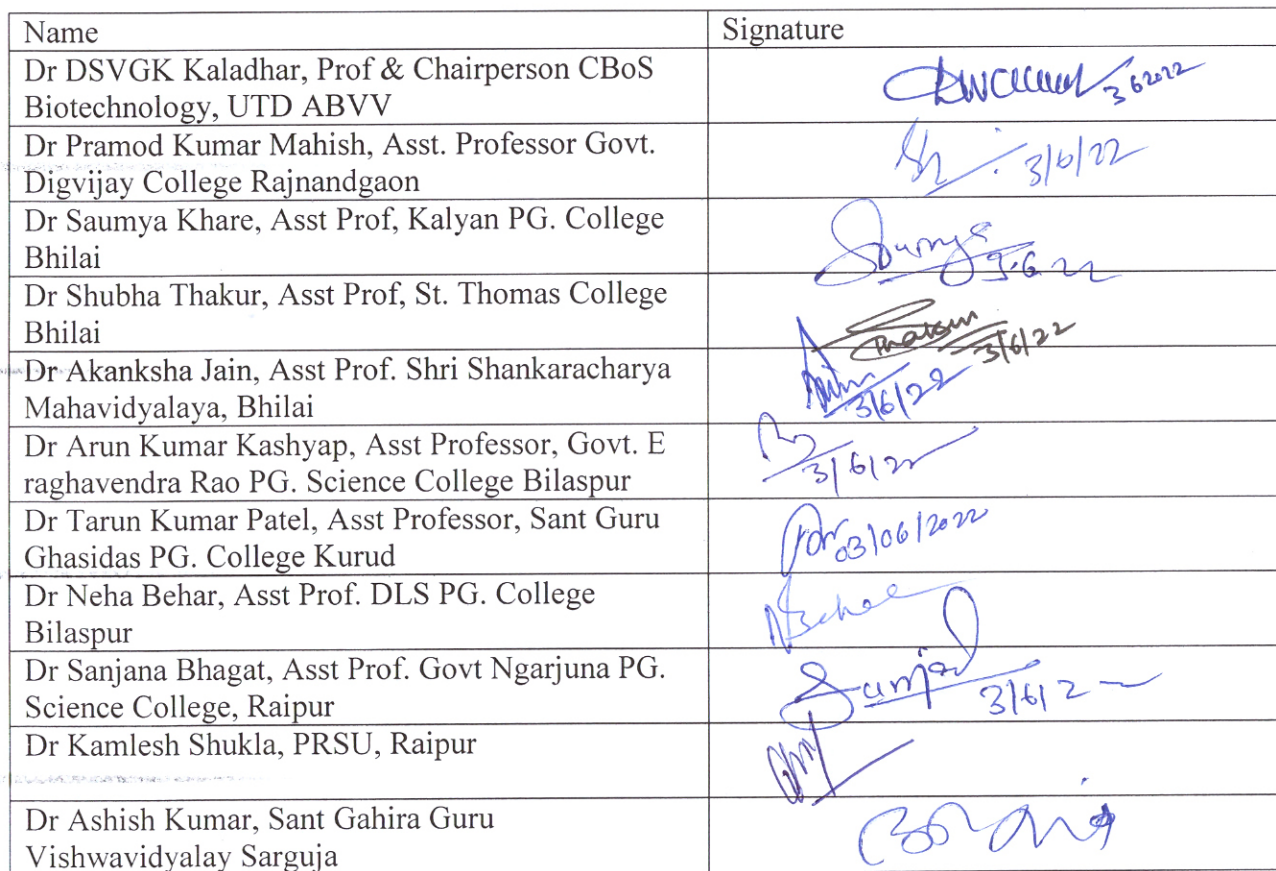 Name
Signature
Dr DSVGK Kaladhar, Prof & Chairperson CBoS
Biotechnology, UTD ABVV
3 6 2022
Dr Pramod Kumar Mahish, Asst. Professor Govt.
Digvijay College Rajnandgaon
3/6/22
Dr Saumya Khare, Asst Prof, Kalyan PG. College
Bhilai
Soumya
3.6 22
Dr Shubha Thakur, Asst Prof, St. Thomas College
Bhilai
Thakur
3/6/22
Dr Akanksha Jain, Asst Prof. Shri Shankaracharya
Mahavidyalaya, Bhilai
3/6/22
Dr Arun Kumar Kashyap, Asst Professor, Govt. E
raghavendra Rao PG. Science College Bilaspur
3/6/22
Dr Tarun Kumar Patel, Asst Professor, Sant Guru
Ghasidas PG. College Kurud
03/06/2022
Dr Neha Behar, Asst Prof. DLS PG. College
Bilaspur
Dr Sanjana Bhagat, Asst Prof. Govt Ngarjuna PG.
Science College, Raipur
3/6/2
Dr Kamlesh Shukla, PRSU, Raipur
Dr Ashish Kumar, Sant Gahira Guru
Vishwavidyalay Sarguja